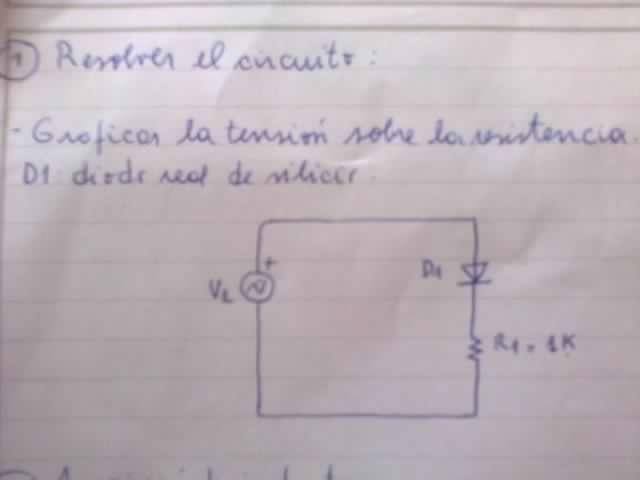 1 Resolver el circuito:
- Graficar la tensión sobre la resistencia.
D1: diodo real de silicio.
+
D1
R1 = 1K